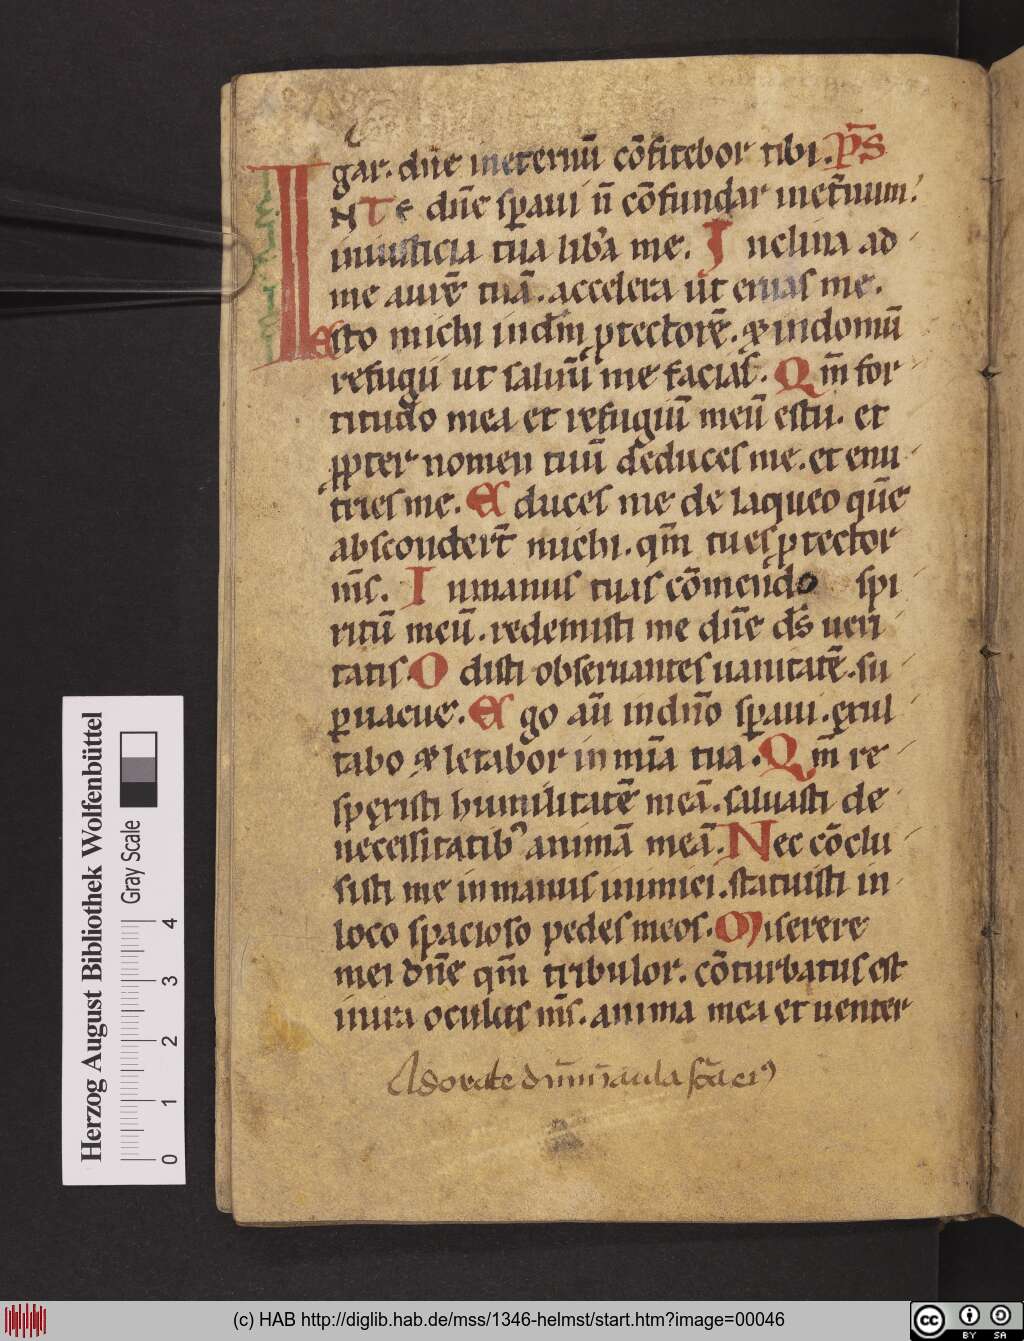 gar. dn̄e ineternū cōfitebor tibi. P̄S
INTE dn̄e sp̄aui n̄ cōfundar inet̄num.
iniusticia tua lib̾a me. Inclina ad
me aurē tuā. accelera ut eruas me.
Esto michi indm̄ ꝓtectorē. ⁊ indomū
refugii ut saluū me facias. Qm̄ for
titudo mea et refugiū meū estu. et
ꝓpter nomen tuū deduces me. et enu
tries me. Educes me de laqueo quē
absconder̄t michi. qm̄ tu es ꝓtector
m̄s. Inmanus tuas cōmendo spi
ritū meū. redemisti me dn̄e ds̄ ueri
tatis. Odisti obseruantes uanitatē. su
ꝑuacue. Ego aū indn̄o sp̄aui. exul
tabo ⁊ letabor in mīa tua. Qm̄ re
spexisti humilitatē meā. saluasti de
necessitatibꝰ animā meā. Nec cōclu
sisti me inmanus inimici. statuisti in
loco spacioso pedes meos. Miserere
mei dn̄e qm̄ tribulor. cōturbatus est
inira oculus m̄s. anima mea et uenter
Adorate dn̄m ī aula sc̄a eiꝰ
Herzog August Bibliothek Wolfenbüttel
Gray Scale
0 1 2 3 4
(c) HAB http://diglib.hab.de/mss/1346-helmst/start.htm?image=00046
cc BY SA